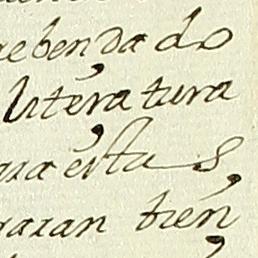 rebendado
Literatura
para éstas,
garan bien